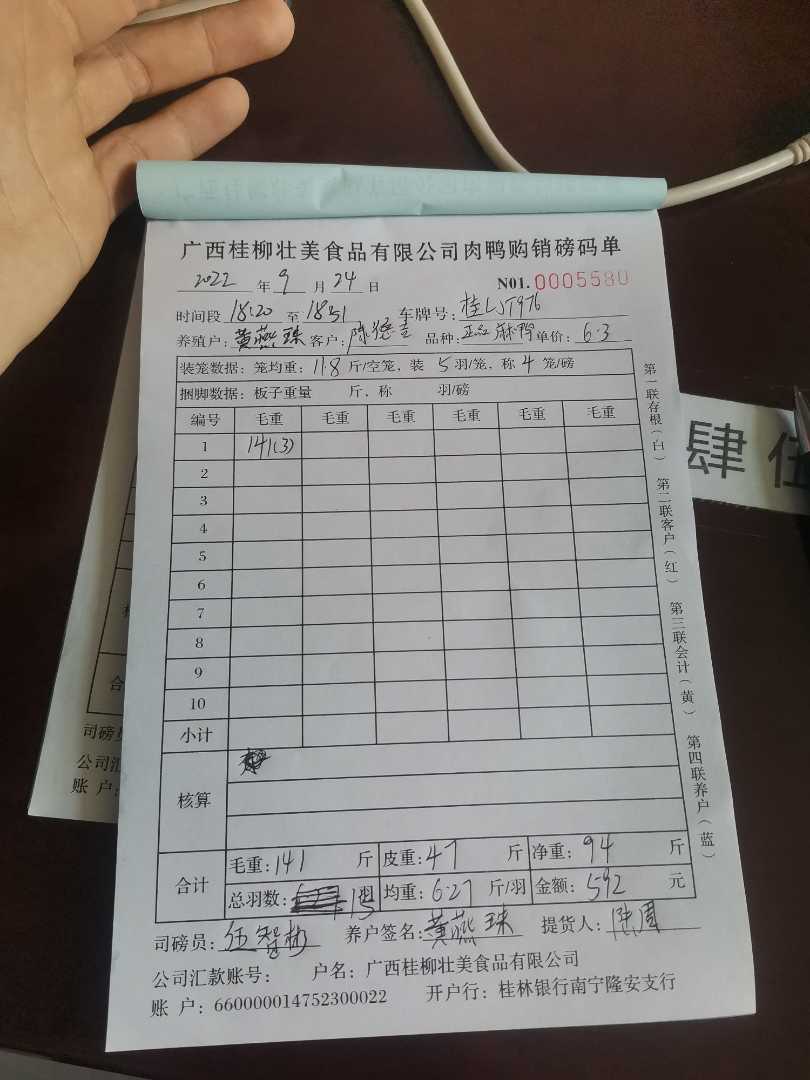 广西桂柳壮美食品有限公司肉鸭购销磅码单
2022 年 9 月 24 日 N01.0005580
时间段 18:20 至 18:51 车牌号: 桂LJT976
养殖户: 黄燕珠 客户: 陈 品种: 正红麻鸭 单价: 6.3
装笼数据: 笼均重: 11.8 斤/空笼, 装 5 羽/笼, 称 4 笼/磅
捆脚数据: 板子重量 斤, 称 羽/磅
编号 毛重 毛重 毛重 毛重 毛重 毛重
1 141(3)
2
3
4
5
6
7
8
9
10
小计
核算
合计
毛重: 141 斤 皮重: 47 斤 净重: 94 斤
总羽数: 15 羽 均重: 6.27 斤/羽 金额: 592 元
司磅员: 伍智彬 养户签名: 黄燕珠 提货人:
公司汇款账号: 户名: 广西桂柳壮美食品有限公司
账 户: 660000014752300022 开户行: 桂林银行南宁隆安支行
第一联存根(白) 第二联客户(红) 第三联会计(黄) 第四联养户(蓝)
肆 伍
合
司磅员
公司汇
账 户: